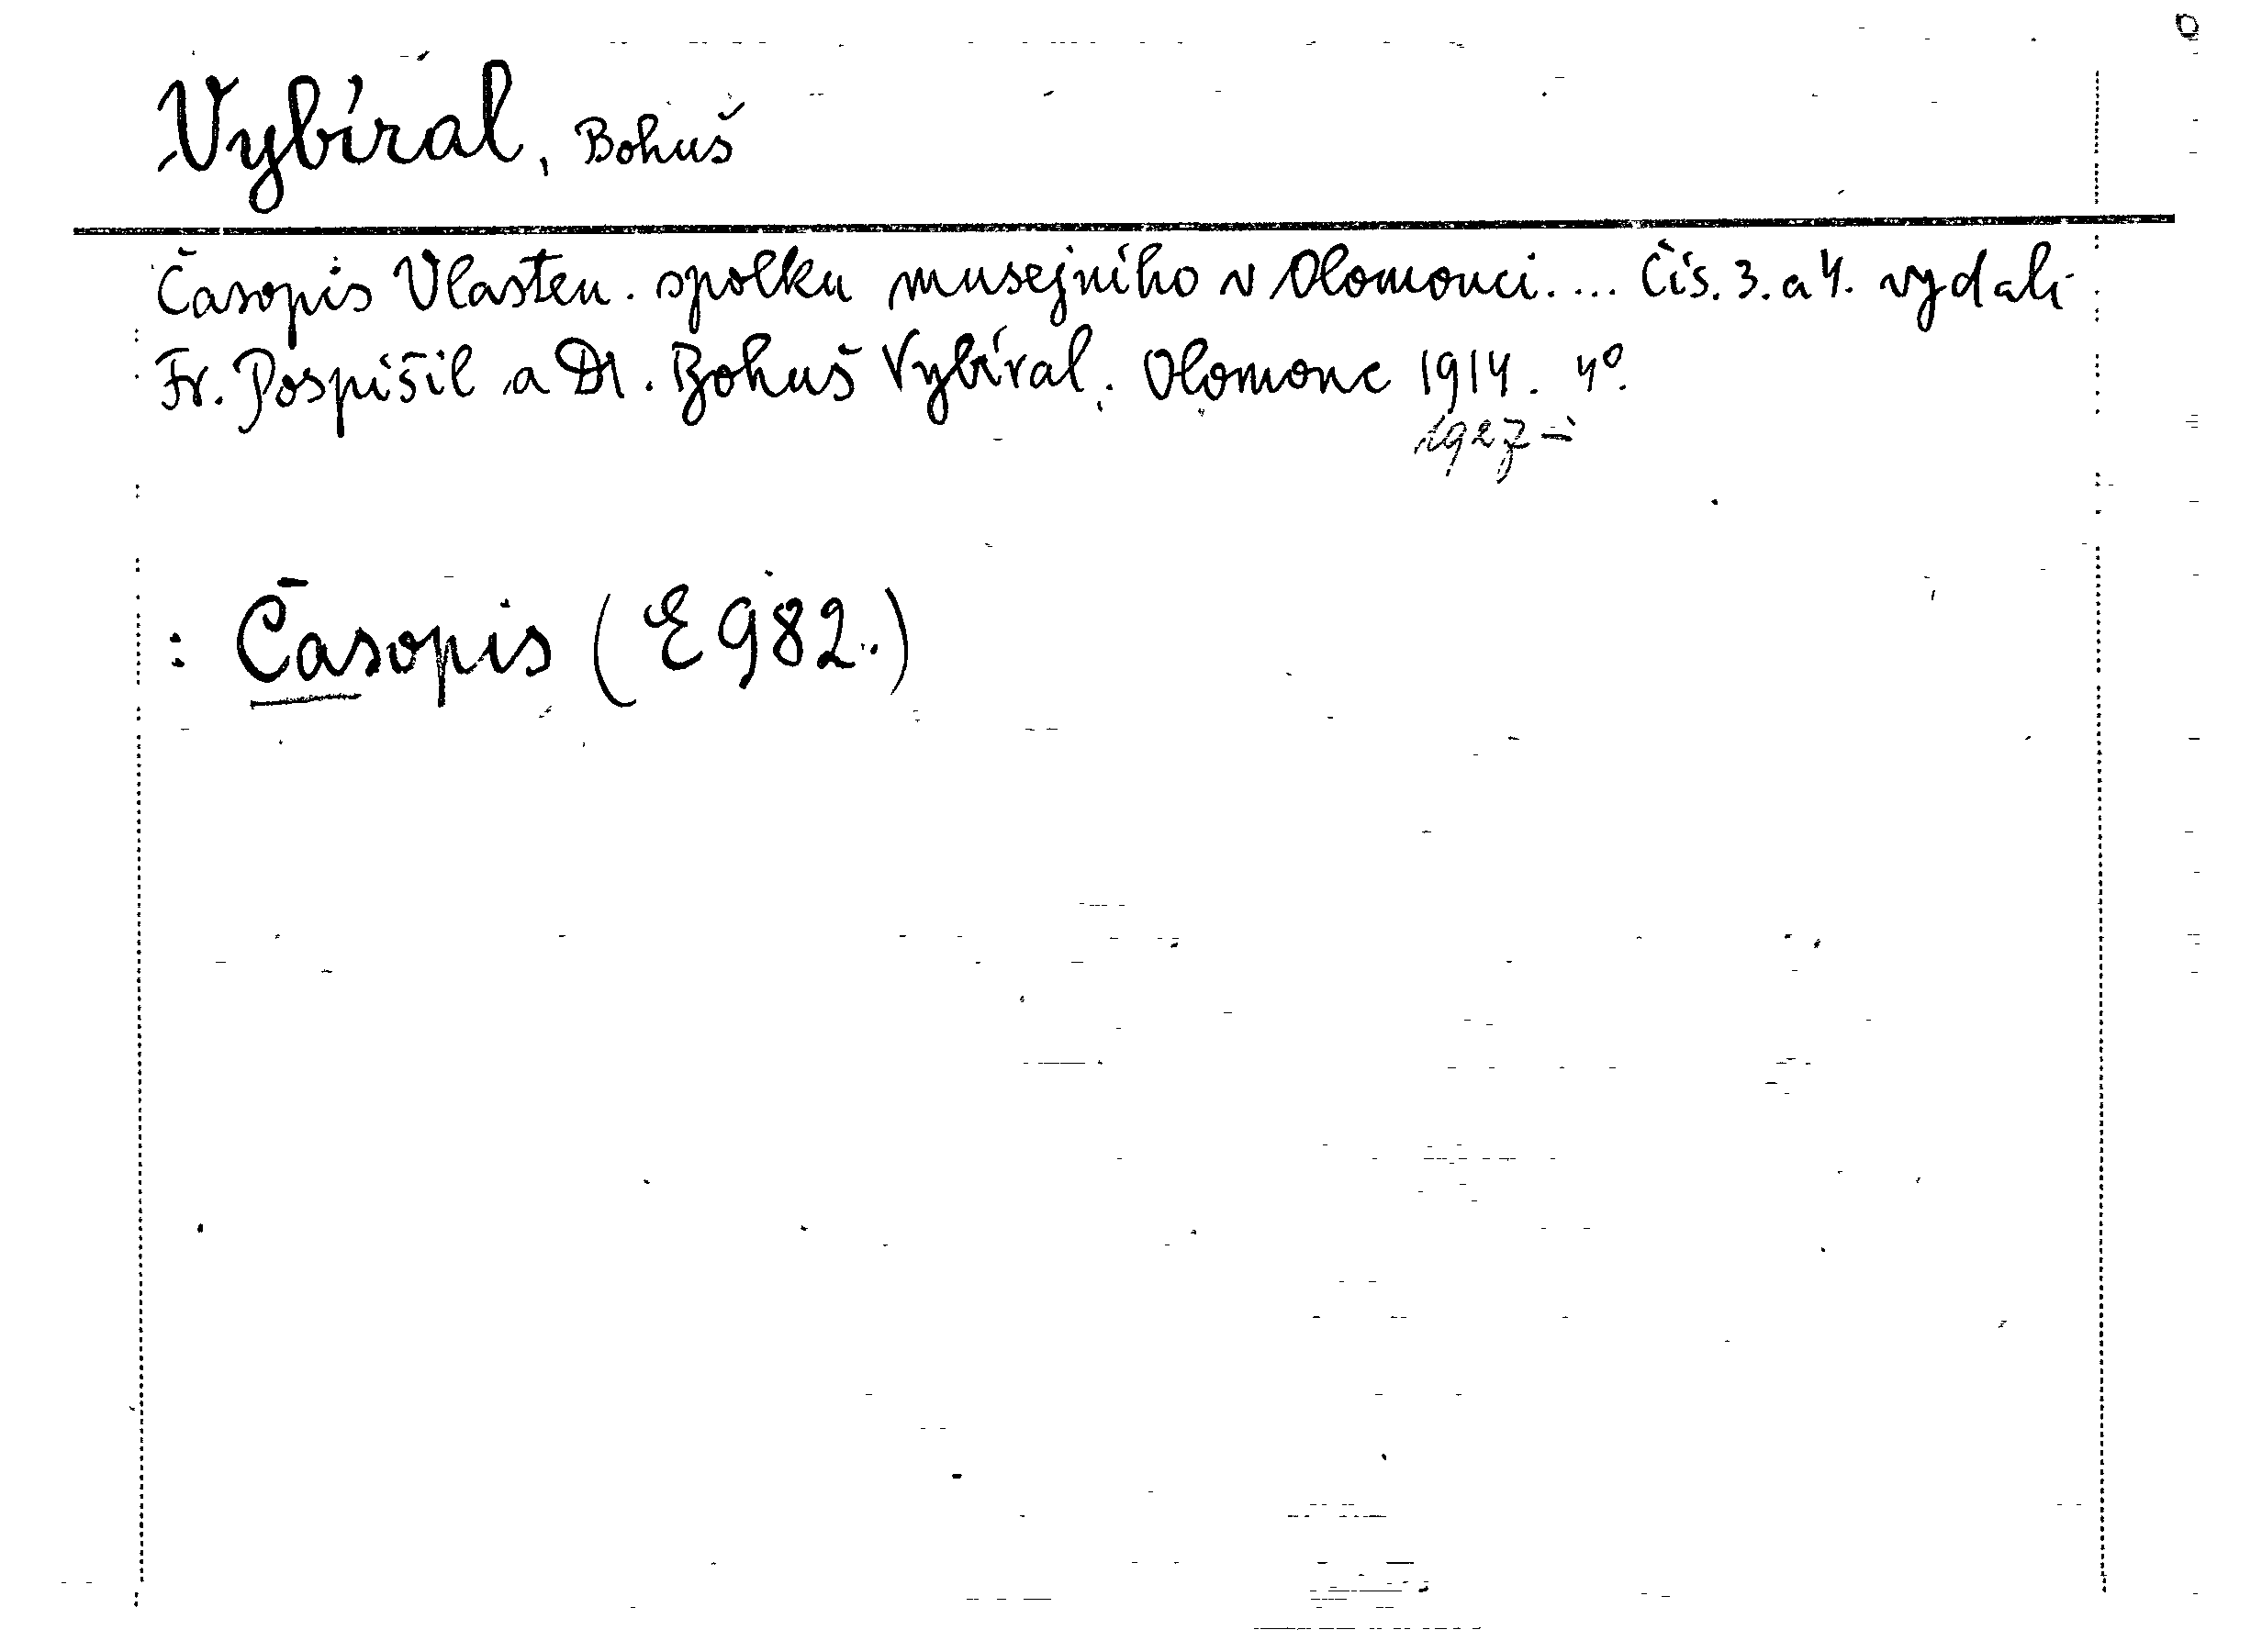 Vybíral, Bohuš
Časopis Vlasten. spolku musejního v Olomouci.... Čís. 3. a 4. vydali
Fr. Pospíšil a Dr. Bohuš Vybíral. Olomouc 1914. 4°.
1927 –
: Časopis (E 982.)